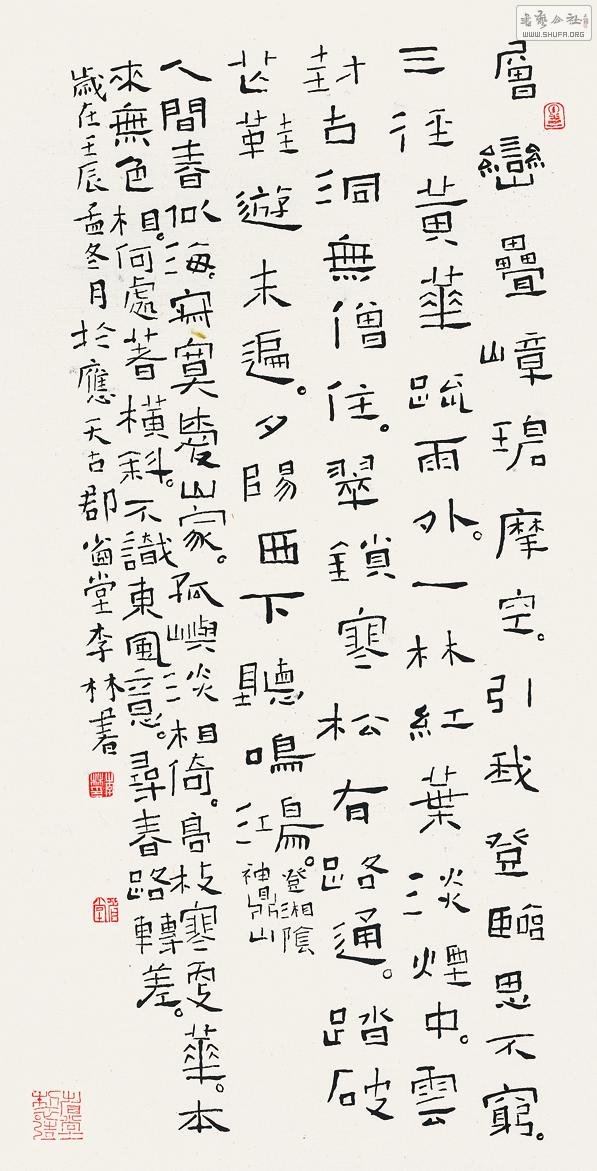 層巒疊嶂碧摩空。引我登臨思不窮。
三徑黃華疏雨外。一林紅葉淡煙中。雲
封古洞無僧住。翠鎖寒松有路通。踏破
芒鞋遊未遍。夕陽西下聽鳴鴻。
登湘陰
神鼎山
人間春似海。寂寞愛山家。孤嶼淡相倚。高枝寒更華。本
來無色相。何處著橫斜。不識東風意。尋春路轉差。
歲在壬辰孟冬月於應天古郡堂李林書
书艺公社
WWW.SHUFA.ORG